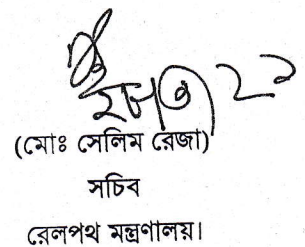 (মোঃ সেলিম রেজা)
সচিব
রেলপথ মন্ত্রণালয়।